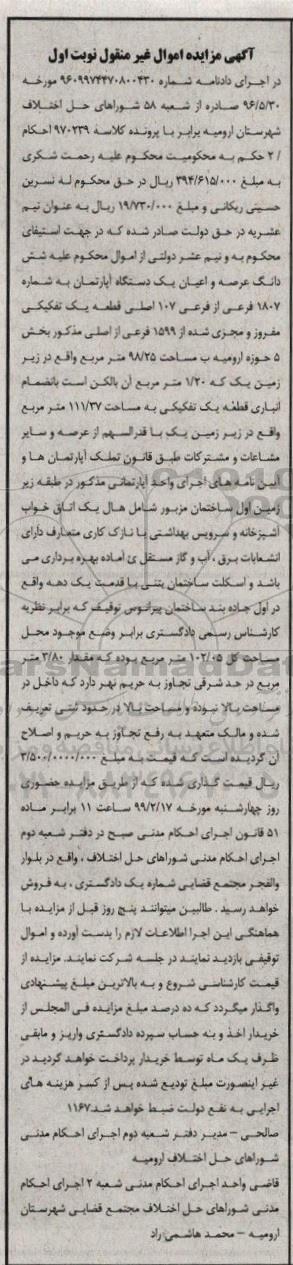 آگهی مزایده اموال غیر منقول نوبت اول
در اجرای دادنامه شماره ۹۶۰۹۹۷۴۴۷۰۸۰۰۴۳۰ مورخه
۹۶/۵/۳۰ صادره از شعبه ۵۸ شوراهای حل اختلاف
شهرستان ارومیه برابر با پرونده کلاسه ۹۷۰۲۳۹ احکام
/ ۲ حکم به محکومیت محکوم علیه رحمت شکری
به مبلغ ۳۹۴/۶۱۵/۰۰۰ ریال در حق محکوم له نسرین
حسینی ریکانی و مبلغ ۱۹/۷۳۰/۰۰۰ ریال به عنوان نیم
عشریه در حق دولت صادر شده که در جهت استیفای
محکوم به و نیم عشر دولتی از اموال محکوم علیه شش
دانگ عرصه و اعیان یک دستگاه آپارتمان به شماره
۱۸۰۷ فرعی از فرعی ۱۰۷ اصلی قطعه یک تفکیکی
مفروز و مجزی شده از ۱۵۹۹ فرعی از اصلی مذکور بخش
۵ حوزه ارومیه ب مساحت ۹۸/۲۵ متر مربع واقع در زیر
زمین یک که ۱/۲۰ متر مربع آن بالکن است بانضمام
انباری قطعه یک تفکیکی به مساحت ۱۱۱/۳۷ متر مربع
واقع در زیر زمین یک با قدرالسهم از عرصه و سایر
مشاعات و مشترکات طبق قانون تملک آپارتمان ها و
آیین نامه های اجرای واحد آپارتمانی مذکور در طبقه زیر
زمین اول ساختمان مزبور شامل هال یک اتاق خواب
آشپزخانه و سرویس بهداشتی با نازک کاری متعارف دارای
انشعابات برق ، آب و گاز مستقل ئ آماده بهره برداری می
باشد و اسکلت ساختمان بتنی با قدمت یک دهه واقع
در اول جاده بند ساختمان پیرانوس توقیف که برابر نظریه
کارشناس رسمی دادگستری برابر وضع موجود محل
مساحت کل ۱۰۲/۰۵ متر مربع بوده که مقدار ۳/۸۰ متر
مربع در حد شرقی تجاوز به حریم نهر دارد که داخل در
مساحت بالا نبوده و مساحت بالا در حدود ثبتی تعریف
شده و مالک متعهد به رفع تجاوز به حریم و اصلاح
آن گردیده است که قیمت به مبلغ ۳/۵۰۰/۰۰۰/۰۰۰
ریال قیمت گذاری شده که از طریق مزایده حضوری
روز چهارشنبه مورخه ۹۹/۲/۱۷ ساعت ۱۱ برابر ماده
۵۱ قانون اجرای احکام مدنی صبح در دفتر شعبه دوم
اجرای احکام مدنی شوراهای حل اختلاف ، واقع در بلوار
والفجر مجتمع قضایی شماره یک دادگستری ، به فروش
خواهد رسید . طالبین میتوانند پنج روز قبل از مزایده با
هماهنگی این اجرا اطلاعات لازم را بدست آورده و اموال
توقیفی بازدید نمایند در جلسه شرکت نمایند. مزایده از
قیمت کارشناسی شروع و به بالاترین مبلغ پیشنهادی
واگذار میگردد که ده درصد مبلغ مزایده فی المجلس از
خریدار اخذ و به حساب سپرده دادگستری واریز و مابقی
ظرف یک ماه توسط خریدار پرداخت خواهد گردید در
غیر اینصورت مبلغ تودیع شده پس از کسر هزینه های
اجرایی به نفع دولت ضبط خواهد شد.۱۱۶۷
صالحی – مدیر دفتر شعبه دوم اجرای احکام مدنی
شوراهای حل اختلاف ارومیه
قاضی واحد اجرای احکام مدنی شعبه ۲ اجرای احکام
مدنی شوراهای حل اختلاف مجتمع قضایی شهرستان
ارومیه – محمد هاشمی راد